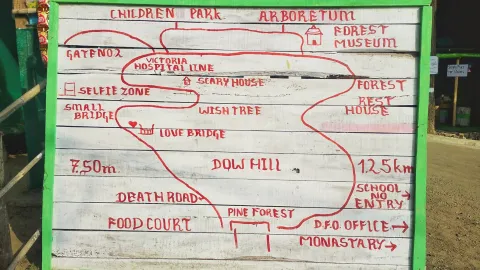 CHILDREN PARK
ARBORETUM
FOREST
MUSEUM
GATENO2
VICTORIA
HOSPITAL LINE
SCARY HOUSE
SELFIE ZONE
FOREST
REST
HOUSE
SMALL
BRIDGE
WISHTREE
LOVE BRIDGE
7.50m
DOW HILL
1.25km
DEATH ROAD
SCHOOL
NO
ENTRY
PINE FOREST
FOOD COURT
D.F.O. OFFICE
MONASTARY